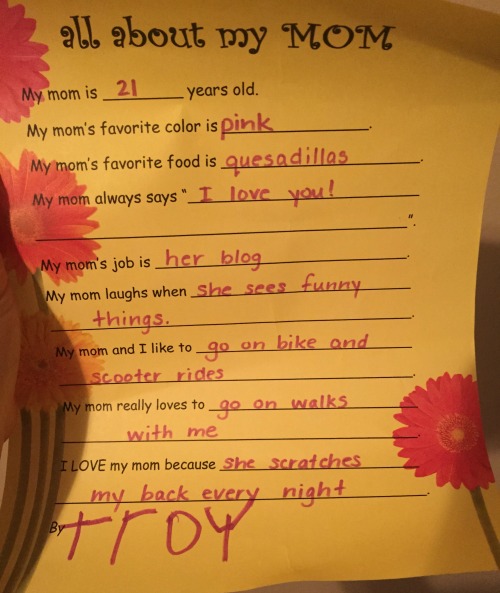 all about my MOM
My mom is 21 years old.
My mom's favorite color is pink.
My mom's favorite food is quesadillas.
My mom always says "I love you!
".
My mom's job is her blog.
My mom laughs when she sees funny
things.
My mom and I like to go on bike and
scooter rides.
My mom really loves to go on walks
with me.
I LOVE my mom because she scratches
my back every night.
By Troy